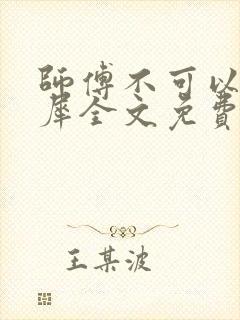 師傅不可以
犀全文免費
王某波